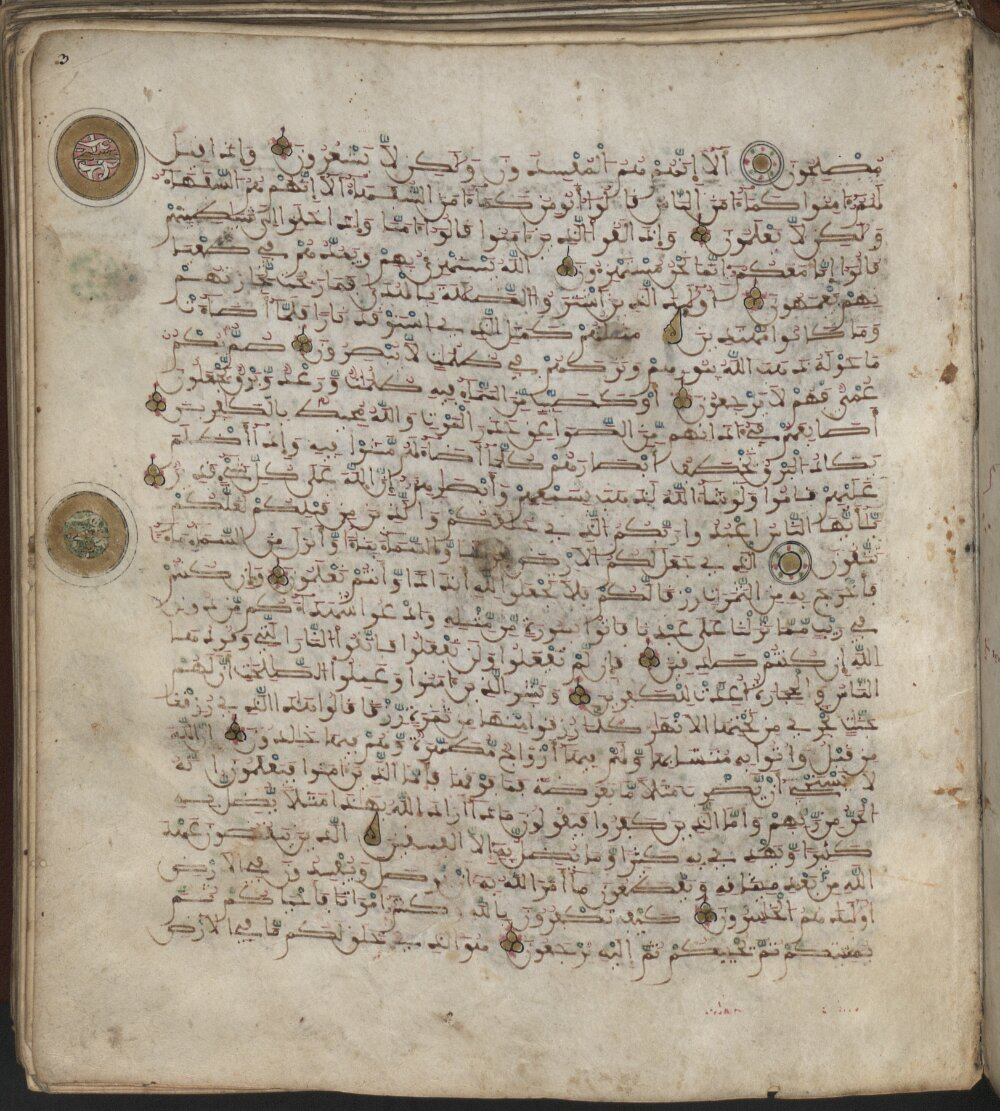 مصلحون ألا إنهم هم المفسدون ولكن لا يشعرون وإذا قيل
لهم ءامنوا كما ءامن الناس قالوا أنومن كما ءامن السفهاء ألا إنهم هم السفهاء
ولكن لا يعلمون وإذا لقوا الذين ءامنوا قالوا ءامنا وإذا خلوا إلى شيطينهم
قالوا إنا معكم إنما نحن مستهزءون الله يستهزئ بهم ويمدهم في طغيـ
نهم يعمهون أولئك الذين اشتروا الضللة بالهدى فما ربحت تجرتهم
وما كانوا مهتدين مثلهم كمثل الذي استوقد نارا فلما أضاءت
ما حوله ذهب الله بنورهم وتركهم في ظلمت لا يبصرون صم بكم
عمي فهم لا يرجعون أو كصيب من السماء فيه ظلمت ورعد وبرق يجعلون
أصابعهم في ءاذانهم من الصواعق حذر الموت والله محيط بالكفرين
يكاد البرق يخطف أبصارهم كلما أضاء لهم مشوا فيه وإذا أظلم
عليهم قاموا ولو شاء الله لذهب بسمعهم وأبصرهم إن الله على كل شيء قدير
يأيها الناس اعبدوا ربكم الذي خلقكم والذين من قبلكم لعلكم
تتقون الذي جعل لكم الارض فرشا والسماء بناء وأنزل من السماء ماء
فأخرج به من الثمرت رزقا لكم فلا تجعلوا لله أندادا وأنتم تعلمون وإن كنتم
في ريب مما نزلنا على عبدنا فاتوا بسورة من مثله وادعوا شهداءكم من دون
الله إن كنتم صدقين فإن لم تفعلوا ولن تفعلوا فاتقوا النار التي وقودها
الناس والحجارة أعدت للكفرين وبشر الذين ءامنوا وعملوا الصلحت أن لهم
جنت تجري من تحتها الانهر كلما رزقوا منها من ثمرة رزقا قالوا هذا الذي رزقنا
من قبل وأتوا به متشبها ولهم فيها أزوج مطهرة وهم فيها خلدون إن الله
لا يستحي أن يضرب مثلا ما بعوضة فما فوقها فأما الذين ءامنوا فيعلمون أنه
الحق من ربهم وأما الذين كفروا فيقولون ماذا أراد الله بهذا مثلا يضل به
كثيرا ويهدي به كثيرا وما يضل به إلا الفسقين الذين ينقضون عهد
الله من بعد ميثقه ويقطعون ما أمر الله به أن يوصل ويفسدون في الارض
أولئك هم الخسرون كيف تكفرون بالله وكنتم أموتا فأحيكم ثم
يميتكم ثم يحييكم ثم إليه ترجعون هو الذي خلق لكم ما في الارض